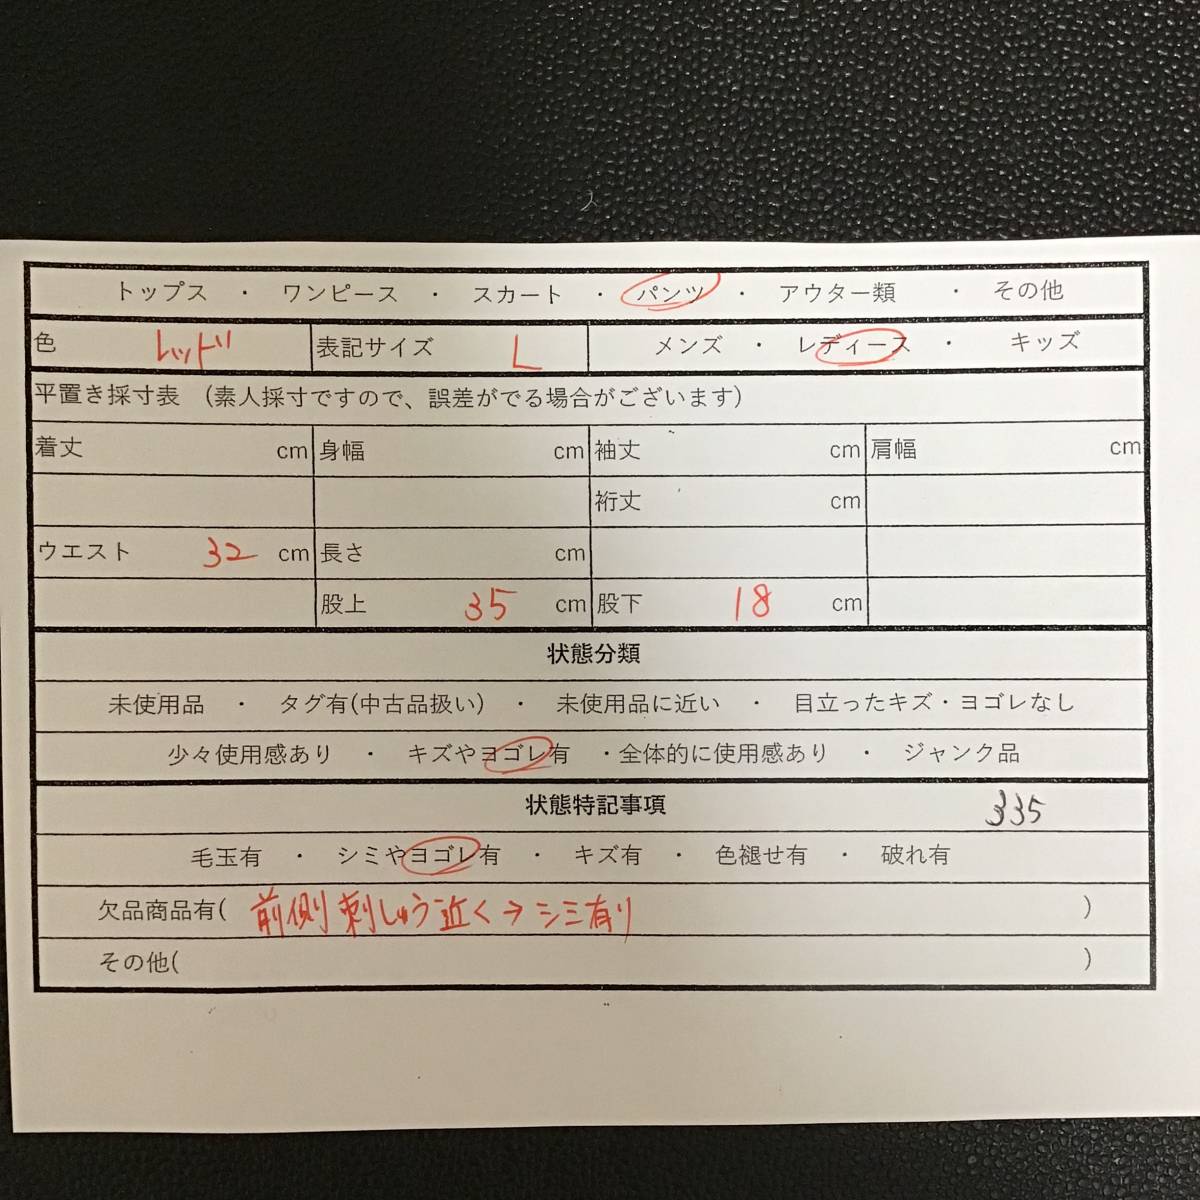 トップス ・ ワンピース ・ スカート ・ パンツ ・ アウター類 ・ その他
色 レッド 表記サイズ L メンズ ・ レディース ・ キッズ
平置き採寸表 (素人採寸ですので、誤差がでる場合がございます)
着丈 cm 身幅 cm 袖丈 cm 肩幅 cm
裄丈 cm
ウエスト 32 cm 長さ cm
股上 35 cm 股下 18 cm
状態分類
未使用品 ・ タグ有(中古品扱い) ・ 未使用品に近い ・ 目立ったキズ・ヨゴレなし
少々使用感あり ・ キズやヨゴレ有 ・全体的に使用感あり ・ ジャンク品
状態特記事項 335
毛玉有 ・ シミやヨゴレ有 ・ キズ有 ・ 色褪せ有 ・ 破れ有
欠品商品有( 前側刺しゅう近く→シミ有り )
その他( )